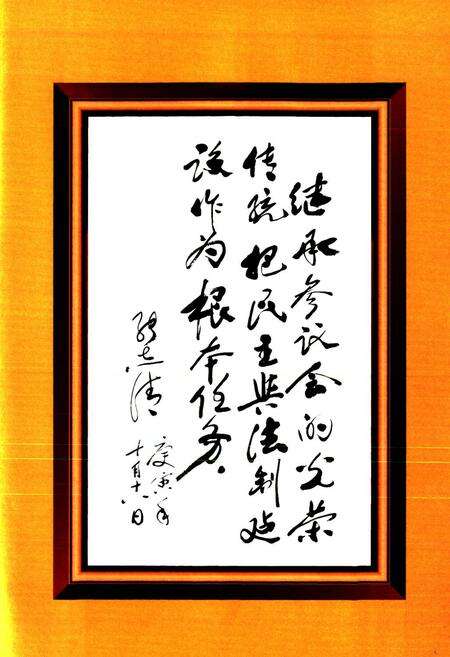 继承参议会的光荣
传统把民主与法制建
设作为根本任务。
志清
庚寅年
十月十六日